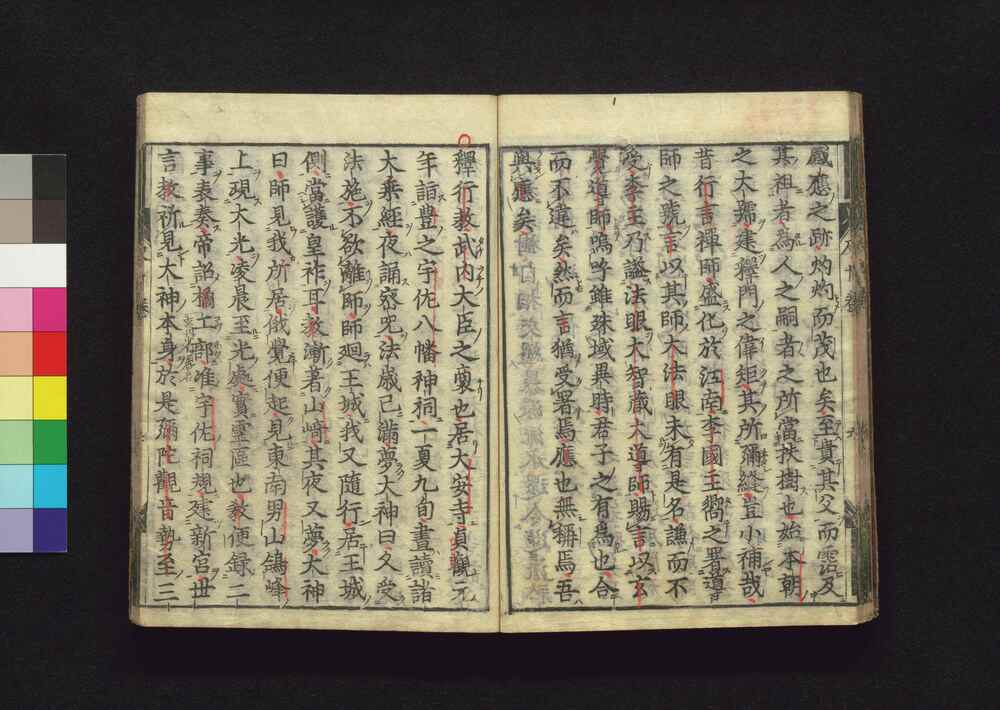 感應之跡灼灼而茂也矣至貴其父而霑及
其祖者爲人之嗣者之所當扶樹也始本朝
之大儒建釋門之偉矩其所彌縫豈小補哉
昔行言禪師盛化於江南李國主嚮之署導
師之號言以其師大法眼未有是名讓而不
受李王乃謚法眼大智藏大導師賜言以玄
覺導師嗚呼雖殊域異時君子之有爲也合
而不違矣然而言猶受署焉應也無稱焉吾
與應矣
釋行教武内大臣之裔也居大安寺貞觀元
年詣豐之宇佐八幡神祠一夏九旬晝讀諸
大乘經夜誦密咒法歳已滿夢大神曰久受
法施不欲離師師廻王城我又隨行居王城
側當護皇祚耳教漸著山﨑其夜又夢大神
曰師見我所居俄覺便起見東南男山鴿峰
上現大光凌晨至光處實靈區也教便録二
事表奏帝詔橘工部准宇佐祠規建新宮世
言教祈見大神本身於是彌陀觀音勢至三